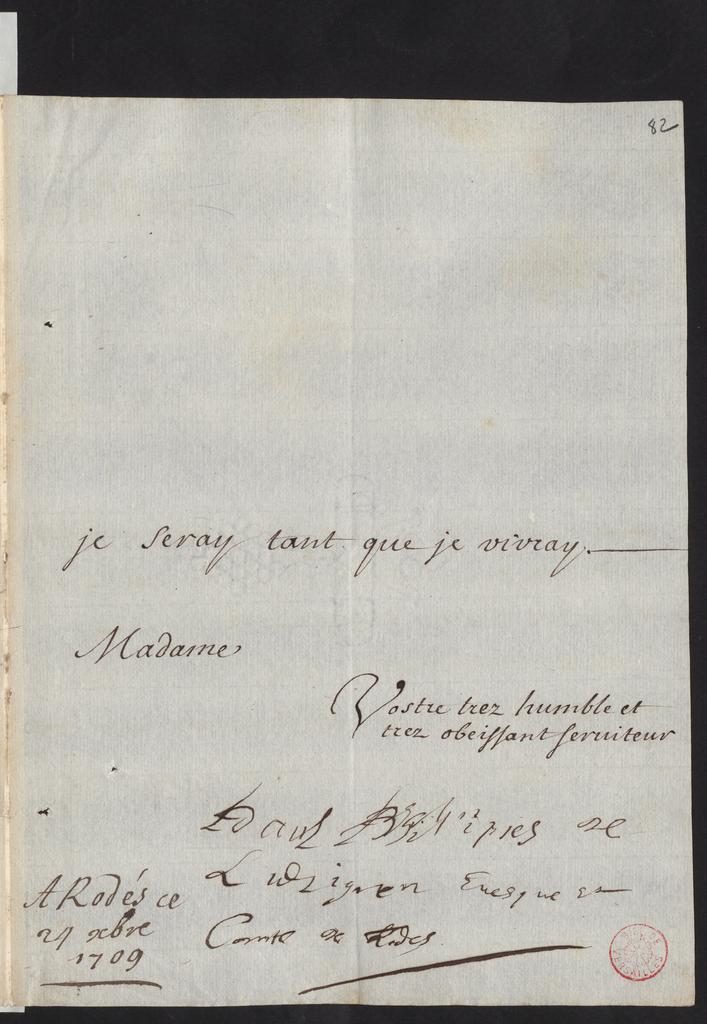 82
je seray tant que je vivray.
Madame
Vostre trez humble et
trez obeissant serviteur
Paul de
Luzignen Evesque et
Comte de Rodes
A Rodés ce
24 xbre
1709
VERSAILLES